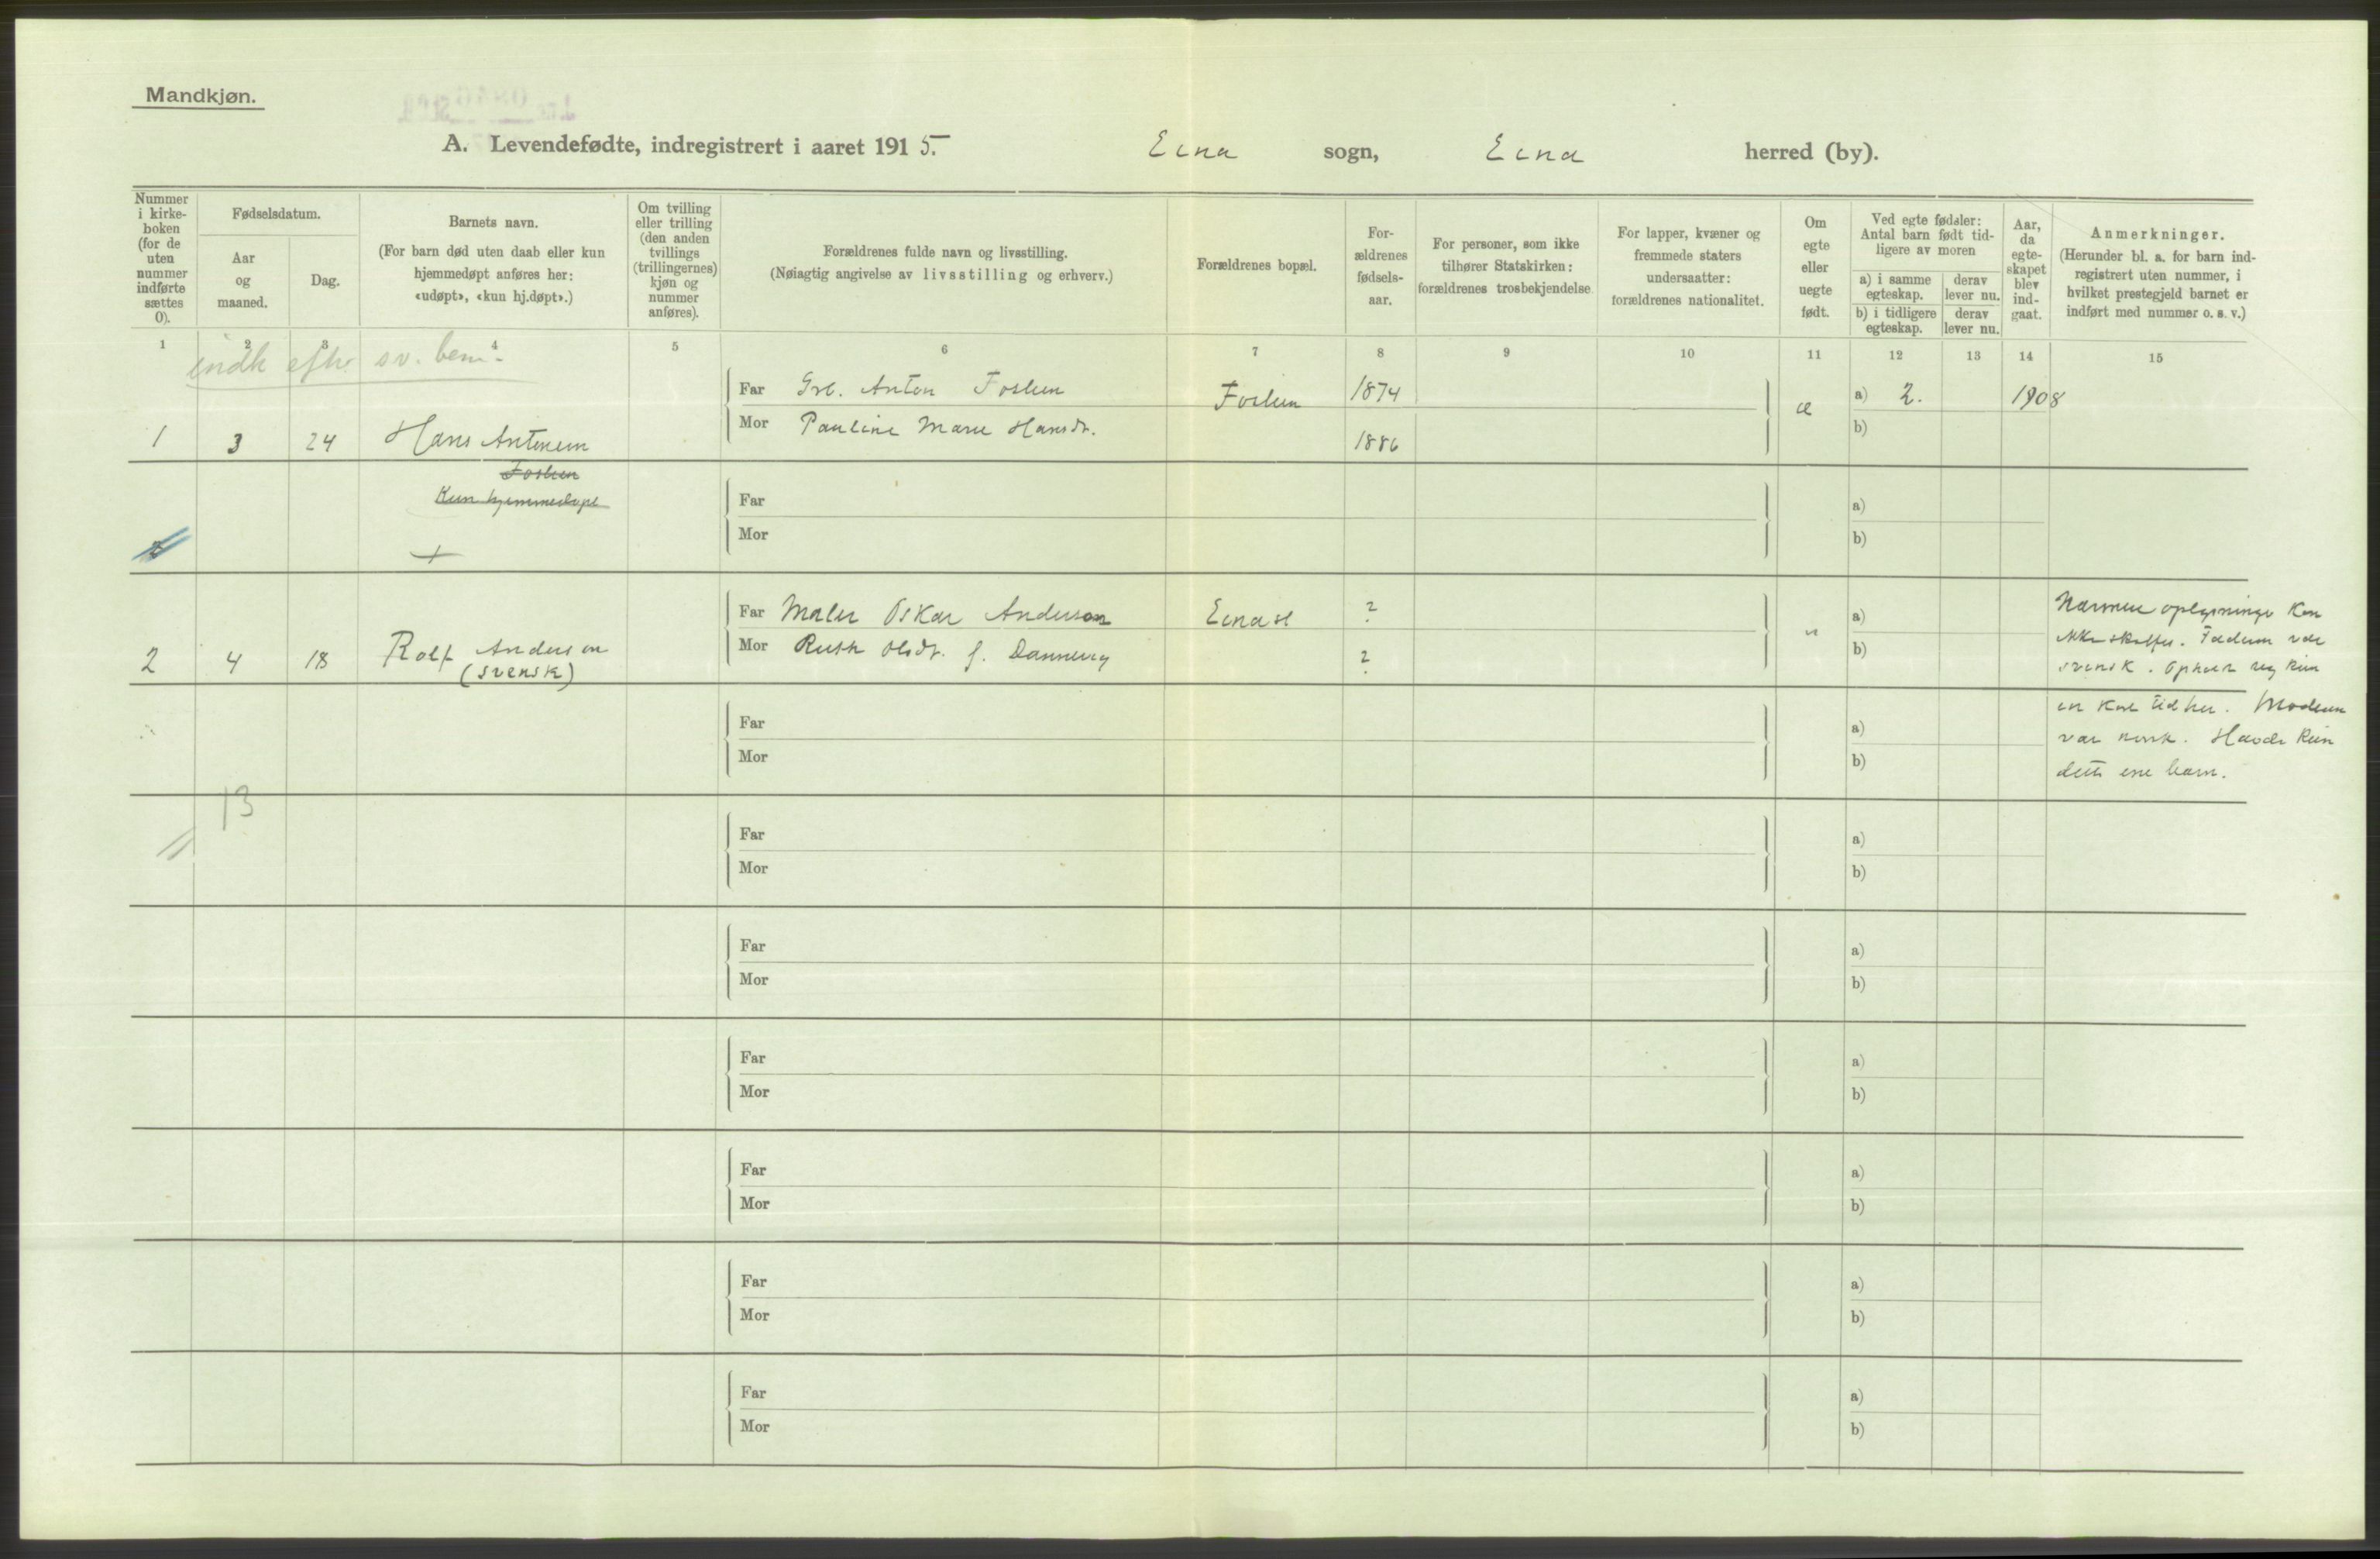 Mandkjøn.
A. Levendefødte, indregistrert i aaret 1915. Eina sogn, Eina herred (by).
Nummer i kirke-boken (for de uten nummer indførte sættes 0).
Fødselsdatum.
Aar og maaned.
Dag.
Barnets navn.
(For barn død uten daab eller kun hjemmedøpt anføres her: «udøpt», «kun hj.døpt».)
Om tvilling eller trilling (den anden tvillings (trillingernes) kjøn og nummer anføres).
Forældrenes fulde navn og livsstilling.
(Nøiagtig angivelse av livsstilling og erhverv.)
Forældrenes bopæl.
For-ældrenes fødsels-aar.
For personer, som ikke tilhører Statskirken: forældrenes trosbekjendelse
For lapper, kvæner og fremmede staters undersaatter: forældrenes nationalitet.
Om egte eller uegte født.
Ved egte fødsler: Antal barn født tid-ligere av moren
a) i samme egteskap.
derav lever nu.
b) i tidligere egteskap.
derav lever nu.
Aar, da egte-skapet blev ind-gaat.
Anmerkninger.
(Herunder bl. a. for barn ind-registrert uten nummer, i hvilket prestegjeld barnet er indført med nummer o. s. v.)
1 2 3 4 5 6 7 8 9 10 11 12 13 14 15
sv. bem.
Far Anton Foslien Foslien 1874 a) 2. 1908
1 3 24 Hans Antonsen Mor Pauline Marie Hansdr. 1886 æ b)
Foslien
Kun hjemmedøpt
Far a)
Mor b)
Far Maler Oskar Anderson Eina st ? a) Nærmere oplysninger kan
2 4 18 Rolf Anderson Mor Ruth Olsdr. f. Dannevig ? u b) ikke skaffes. Faderen var
(svensk) svensk. Opholdt seg kun
Far a) en kort tid her. Moderen
var norsk. Havde kun
Mor b) dette ene barn.
13
Far a)
Mor b)
Far a)
Mor b)
Far a)
Mor b)
Far a)
Mor b)
Far a)
Mor b)
Far a)
Mor b)